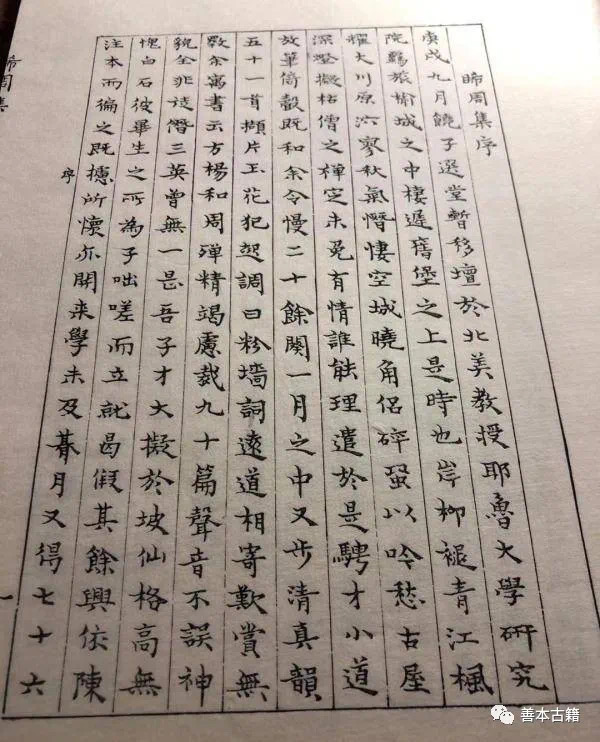 晞周集序
庚戌九月饒子選堂暫移壇於北美教授耶魯大學研究
院羈旅榆城之中棲遲舊堡之上是時也岸柳褪青江楓
耀火川原泬寥秋氣憯悽空城曉角侶碎蛩以吟愁古屋
深燈擬枯僧之禪定未免有情誰能理遣於是騁才小道
放筆倚聲既和余令慢二十餘闋一月之中又步清真韻
五十一首擷片玉花犯起調曰粉墻詞遠道相寄歎賞無
斁余寓書云方楊和周殫精竭慮裁九十篇聲音不誤神
貌全非諓僭三英曾無一是吾子才大擬於坡仙格高無
愧白石彼畢生之所為子咄嗟而立就曷假其餘興依陳
注本而徧之既攄所懷亦開來學未及朞月又得七十六
晞周集
序
一
善本古籍